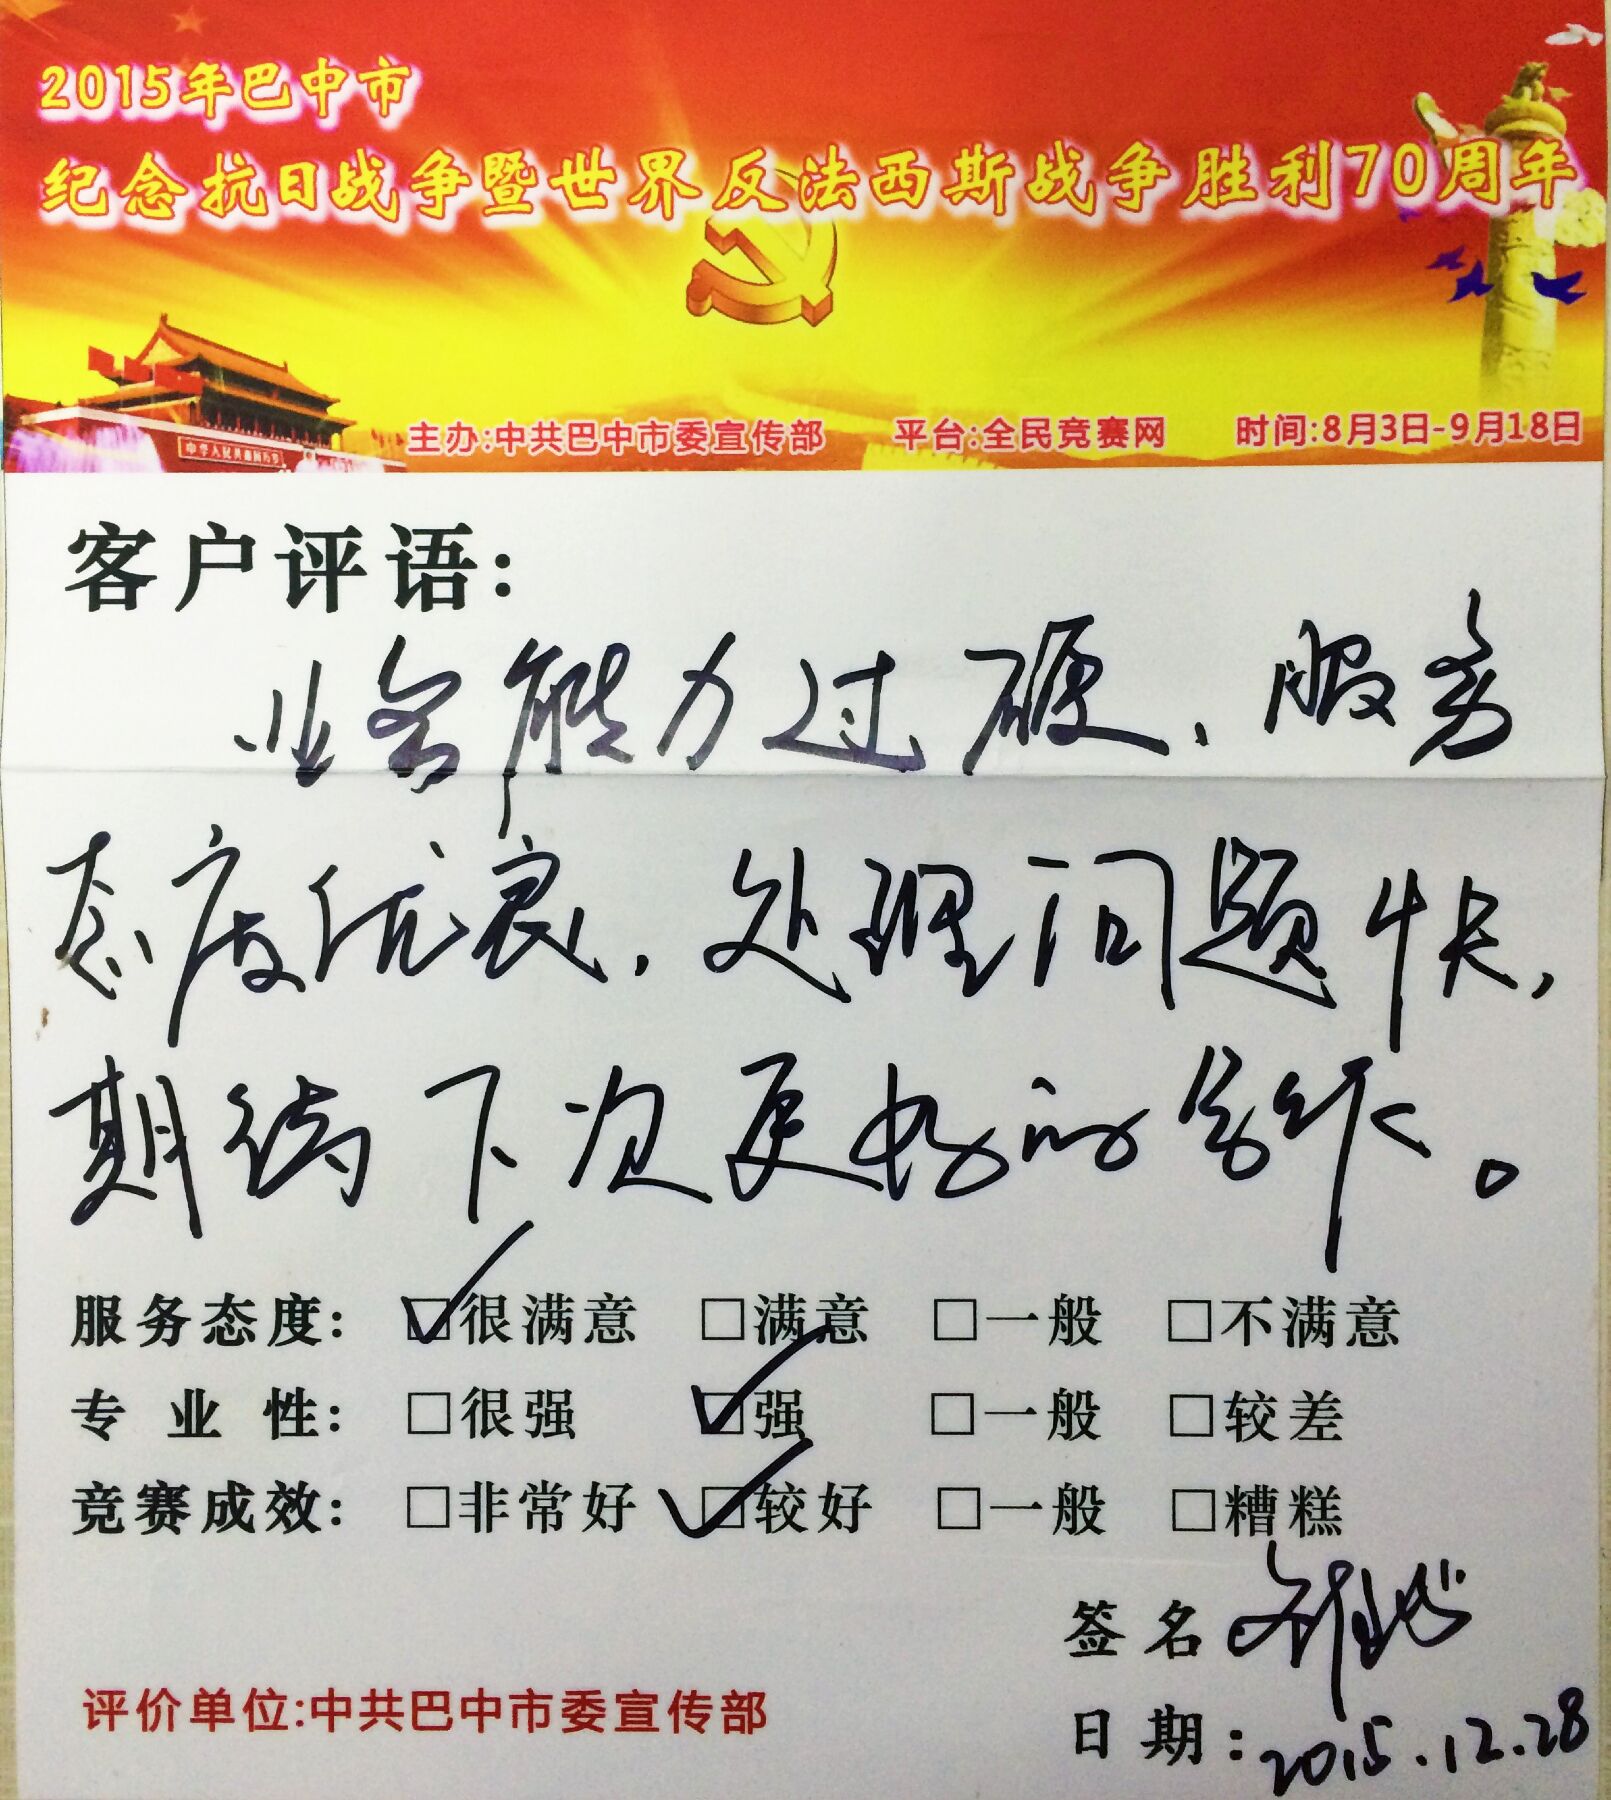 2015年巴中市
纪念抗日战争暨世界反法西斯战争胜利70周年
主办:中共巴中市委宣传部 平台:全民竞赛网 时间:8月3日-9月18日
客户评语:
业务能力过硬、服务
态度优良,处理问题快,
期待下次更好的合作。
服务态度: ☑很满意 □满意 □一般 □不满意
专业性: □很强 ☑强 □一般 □较差
竞赛成效: □非常好 ☑较好 □一般 □糟糕
签名
评价单位:中共巴中市委宣传部
日期:2015.12.28